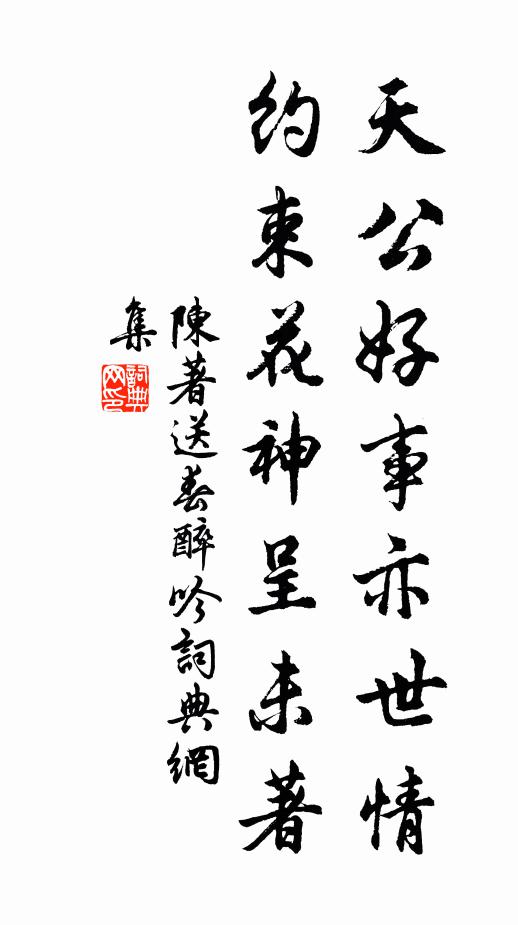 天公好事亦世情
約束花神呈未著
陳著送春醉吟詞典網
集
詞典網印